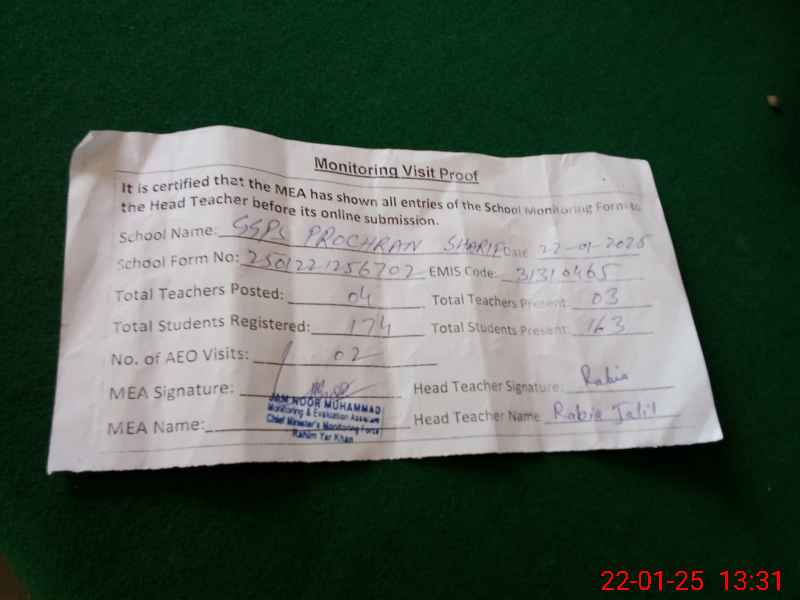 Monitoring Visit Proof
It is certified that the MEA has shown all entries of the School Monitoring Form to
the Head Teacher before its online submission.
School Name: GGPS PROCHRAN SHARIF Date 22-01-2025
School Form No: 2501221256702 EMIS Code: 31310465
Total Teachers Posted: 04 Total Teachers Present: 03
Total Students Registered: 174 Total Students Present: 163
No. of AEO Visits: 02
MEA Signature: Head Teacher Signature: Rabia
JAM NOOR MUHAMMAD
Monitoring & Evaluation Assistant
Chief Minister's Monitoring Force
Rahim Yar Khan
MEA Name: Head Teacher Name Rabia Jalil
22-01-25 13:31